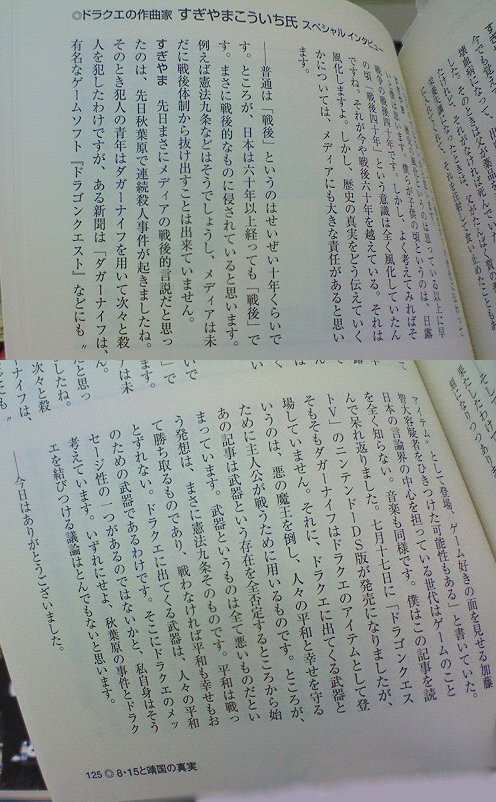 ◎ドラクエの作曲家 すぎやまこういち氏 スペシャルインタビュー
戦争の「戦後四十年」です。しかし、よく考えてみればそ
の頃「戦後四十年」という意識は全く風化していたん
ですね。それが今や戦後六十年を越えている。それは
風化しますよ。しかし、歴史の真実をどう伝えていく
かについては、メディアにも大きな責任があると思い
――普通は「戦後」というのはせいぜい十年くらいで
す。ところが、日本は六十年以上経っても「戦後」で
す。まさに戦後的なものに侵されていると思います。
例えば憲法九条などはそうでしょうし、メディアは未
だに戦後体制から抜け出すことは出来ていません。
すぎやま 先日まさにメディアの戦後的言説だと思っ
たのは、先日秋葉原で連続殺人事件が起きましたね。
そのとき犯人の青年はダガーナイフを用いて次々と殺
人を犯したわけですが、ある新聞は「ダガーナイフは、
有名なゲームソフト『ドラゴンクエスト』などにも〝
アイテム〟として登場、ゲーム好きの面を見せる加藤
智大容疑者をひきつけた可能性もある」と書いていた。
日本の言論界の中心を担っている世代はゲームのこと
を全く知らない。音楽も同様です。僕はこの記事を読
んで呆れ返りました。七月十七日に「ドラゴンクエス
トⅤ」のニンテンドーDS版が発売になりましたが、
そもそもダガーナイフはドラクエのアイテムとして登
場していません。それに、ドラクエに出てくる武器と
いうのは、悪の魔王を倒し、人々の平和と幸せを守る
ために主人公が戦うために用いるものです。ところが、
あの記事は武器という存在を全否定するところから始
まっています。武器というものは全て悪いものだとい
う発想は、まさに憲法九条そのものです。平和は戦っ
て勝ち取るものであり、戦わなければ平和も幸せもお
とずれない。ドラクエに出てくる武器は、人々の平和
のための武器であるわけです。そこにドラクエのメッ
セージ性の一つがあるのではないかと、私自身はそう
考えています。いずれにせよ、秋葉原の事件とドラク
エを結びつける議論はとんでもないと思います。
――今日はありがとうございました。
125 ◎ 8・15と靖国の真実